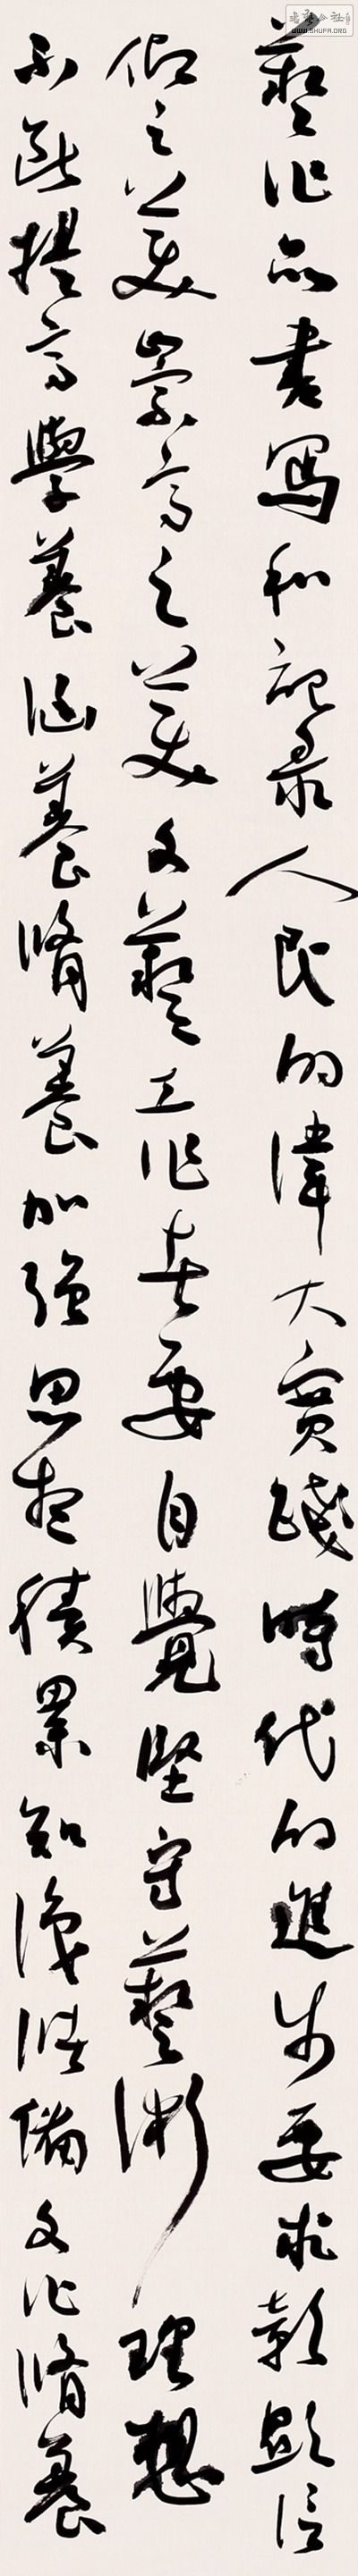 藝作品書寫和記录人民的偉大實踐時代的進步要求彰顯信
仰之美崇高之美文藝工作者要自覺堅守藝術理想
不斷提高學養涵養脩養加强思想積累知識儲備文化脩養